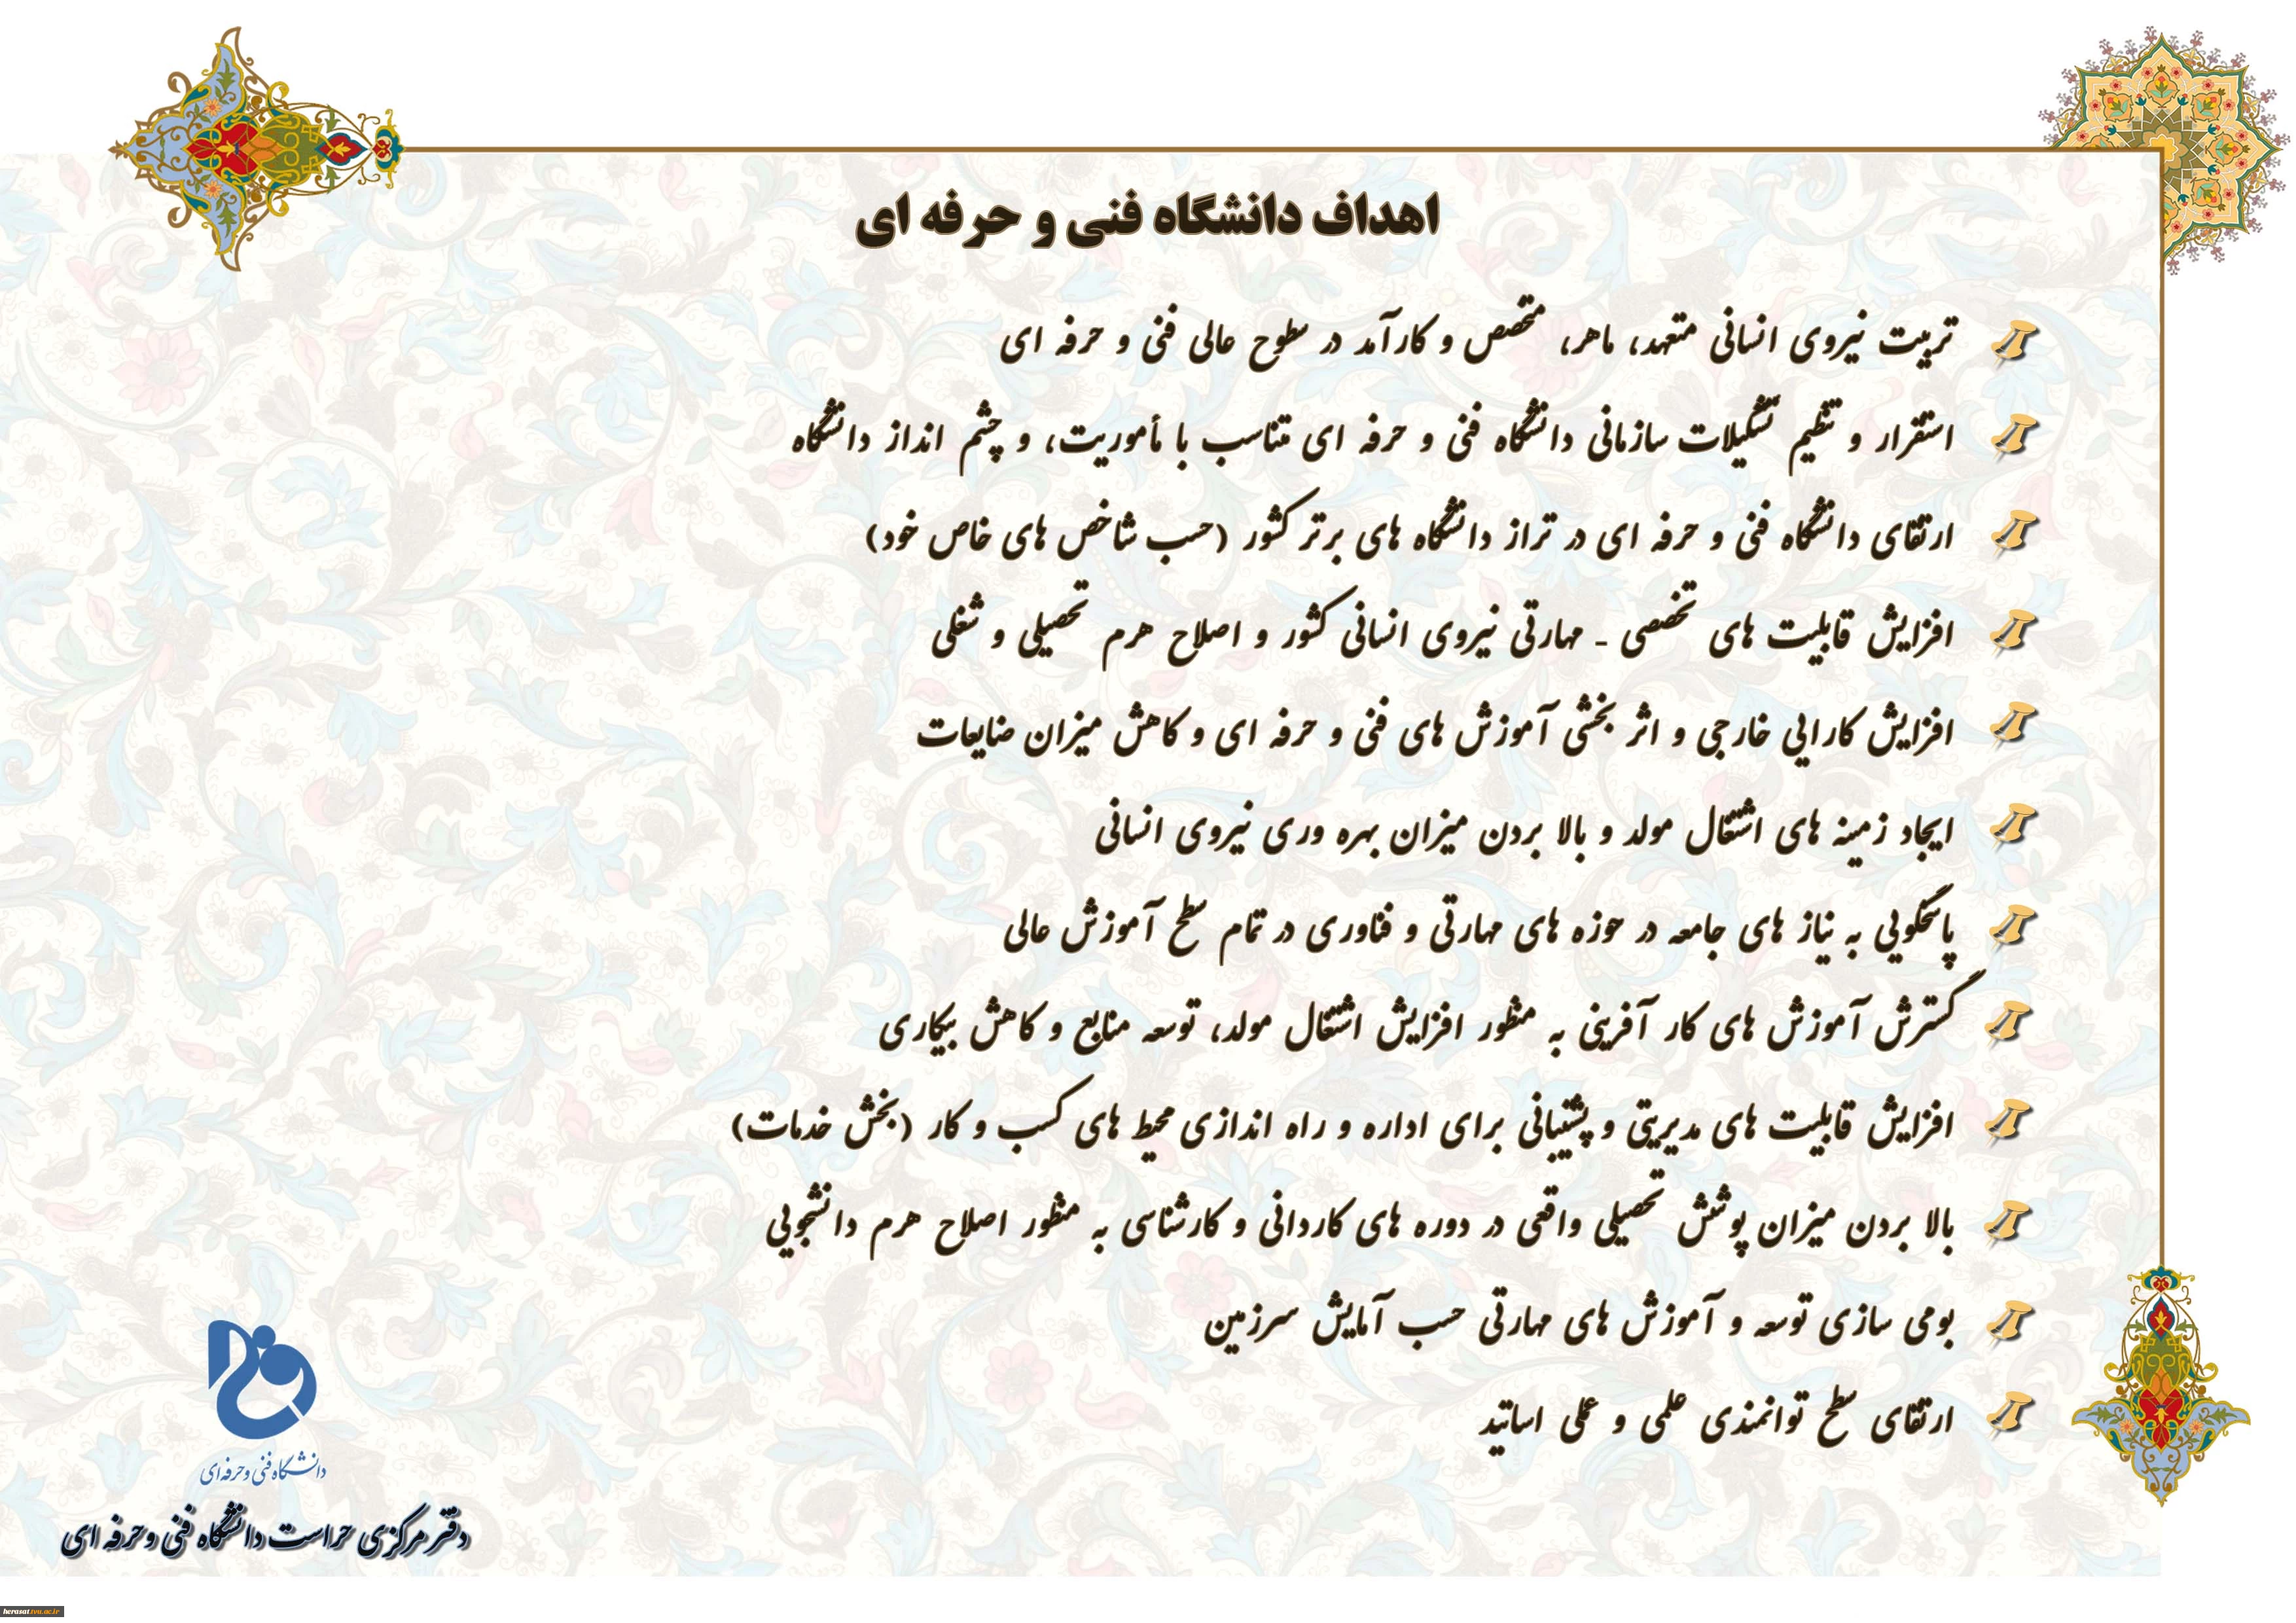 اهداف دانشگاه فنی و حرفه ای
تربیت نیروی انسانی متعهد، ماهر، متخصص و کارآمد در سطوح عالی فنی و حرفه ای
استقرار و تنظیم تشکیلات سازمانی دانشگاه فنی و حرفه ای متناسب با مأموریت، و چشم انداز دانشگاه
ارتقای دانشگاه فنی و حرفه ای در تراز دانشگاه های برتر کشور (حسب شاخص های خاص خود)
افزایش قابلیت های تخصصی - مهارتی نیروی انسانی کشور و اصلاح هرم تحصیلی و شغلی
افزایش کارایی خارجی و اثر بخشی آموزش های فنی و حرفه ای و کاهش میزان ضایعات
ایجاد زمینه های اشتغال مولد و بالا بردن میزان بهره وری نیروی انسانی
پاسخگویی به نیاز های جامعه در حوزه های مهارتی و فناوری در تمام سطح آموزش عالی
گسترش آموزش های کار آفرینی به منظور افزایش اشتغال مولد، توسعه منابع و کاهش بیکاری
افزایش قابلیت های مدیریتی و پشتیبانی برای اداره و راه اندازی محیط های کسب و کار (بخش خدمات)
بالا بردن میزان پوشش تحصیلی واقعی در دوره های کاردانی و کارشناسی به منظور اصلاح هرم دانشجویی
بومی سازی توسعه و آموزش های مهارتی حسب آمایش سرزمین
ارتقای سطح توانمندی علمی و عملی اساتید
دانشگاه فنی و حرفه‌ای
دفتر مرکزی حراست دانشگاه فنی و حرفه ای
herasat.tvu.ac.ir